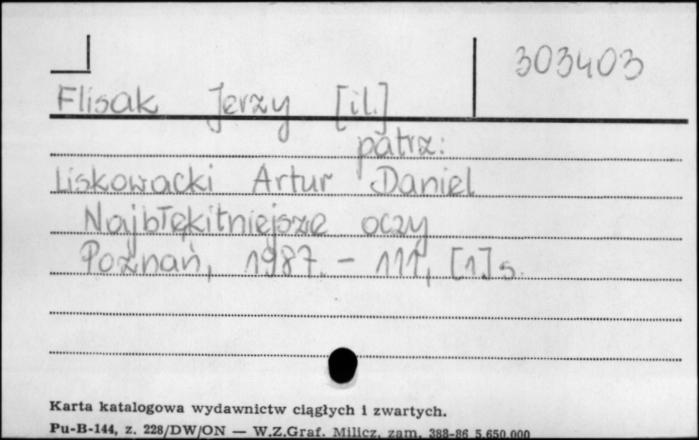 303403
Flisak Jerzy [il.]
patrz:
Liskowacki Artur Daniel
Najbłękitniejsze oczy
Poznań, 1987. - 111, [1] s.
Karta katalogowa wydawnictw ciągłych i zwartych.
Pu-B-144, z. 228/DW/ON — W.Z.Graf. Milicz, zam. 388-86 5.650.000